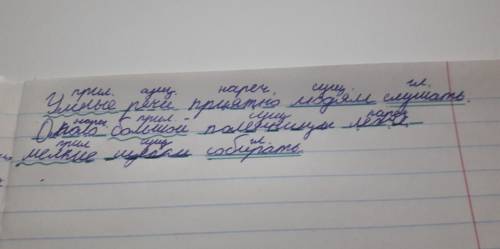 прил. сущ. нареч. сущ. гл.
Умные речи приятно людям слушать.
нареч прил. сущ нареч
Около большой поленницы легко
прил сущ гл.
мелкие собирать